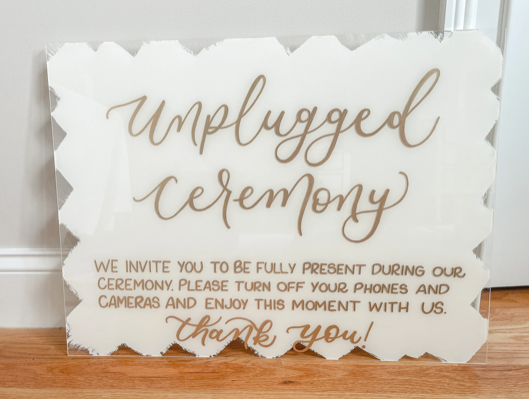 unplugged
ceremony
WE INVITE YOU TO BE FULLY PRESENT DURING OUR
CEREMONY. PLEASE TURN OFF YOUR PHONES AND
CAMERAS AND ENJOY THIS MOMENT WITH US.
thank you!